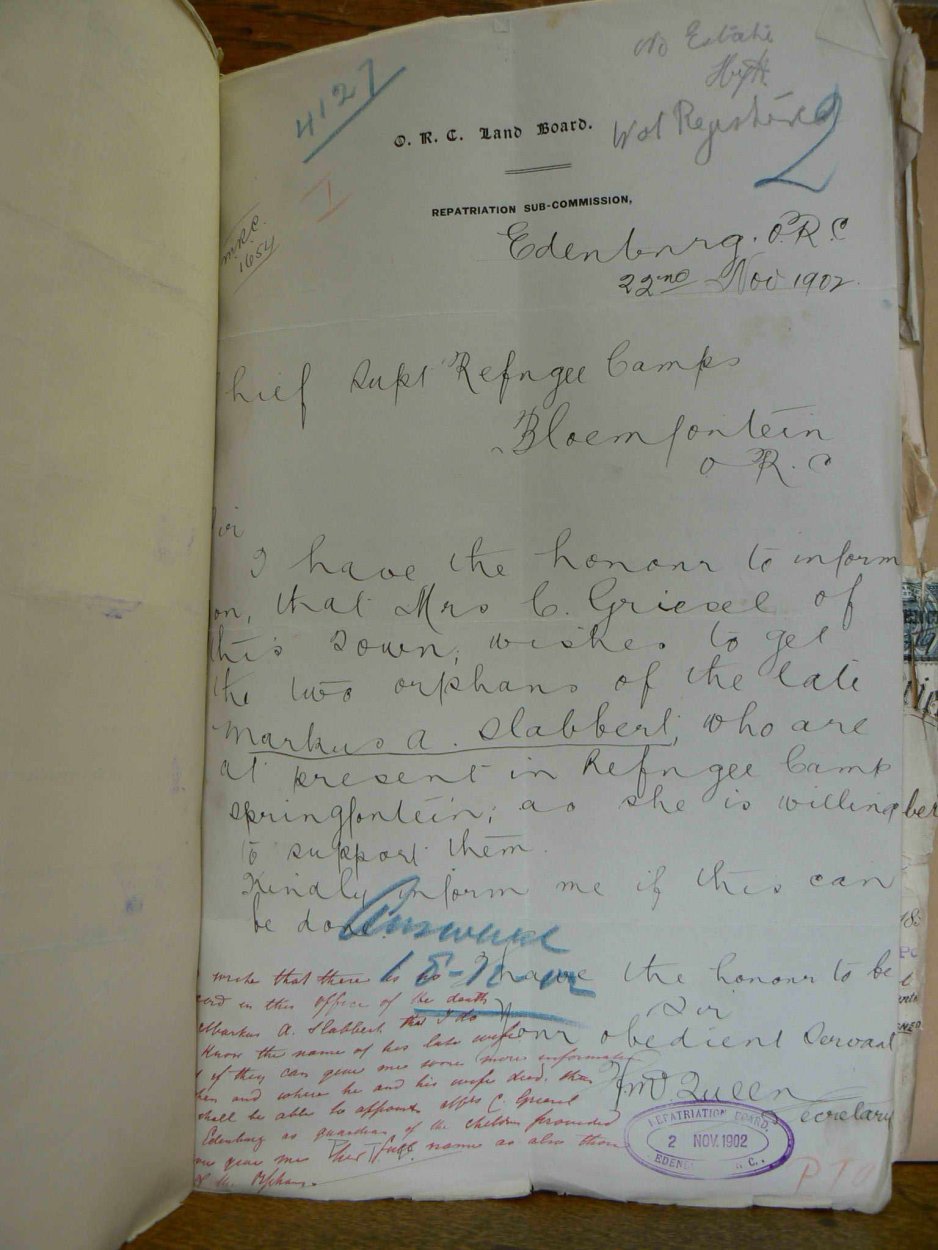 4127
No Estate
Not Registered
2
O. R. C. Land Board.
REPATRIATION SUB-COMMISSION,
1
M.R.C.
1654
Edenburg. O.R.C
22nd Nov 1902.
hief Supt Refugee Camps
Bloemfontein
O R. C
ir
I have the honour to inform
ou, that Mrs C. Griesel of
this Town, wishes to get
the two orphans of the late
Markus A. Slabbert, who are
at present in Refugee Camp
Springfontein; as she is willing
to support them.
Kindly inform me if this can
be done.
Answered
I have the honour to be
Sir
Your obedient Servant
Secretary
write that there is no
ord in this office of the death
Markus A. Slabbert that I do
Know the name of his late wife
if they can give me some more informati
hen and where he and his wife died, then
shall be able to appoint Mrs C. Griesel
Edenburg as guardian of the children provided
give me her full name as also those
Orphans.
REPATRIATION BOARD.
2 NOV. 1902
EDENB R. C.
PTO